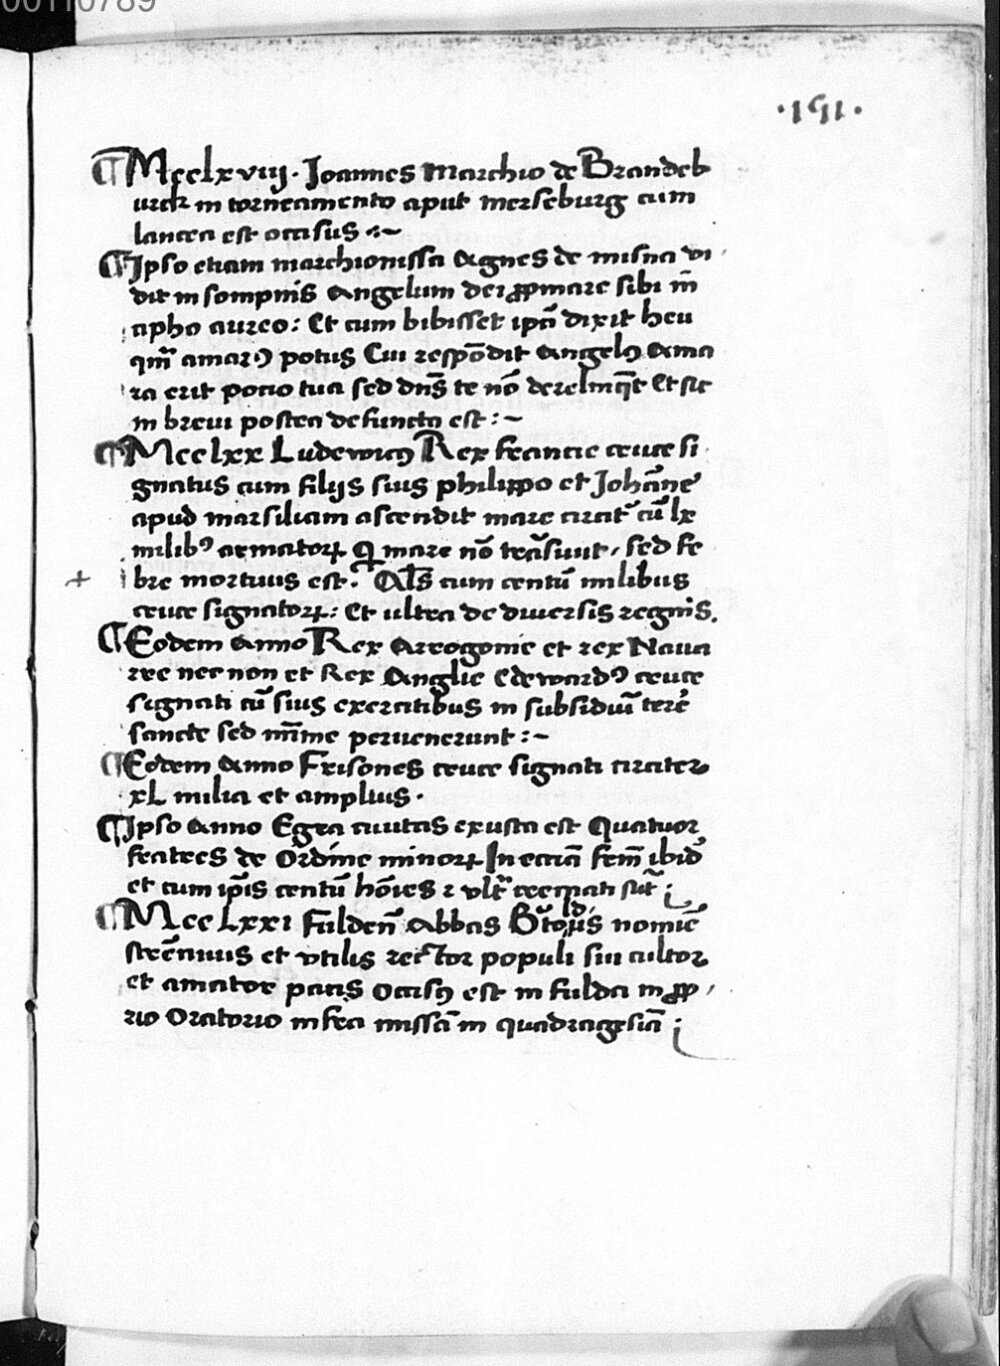 00110789
·191·
¶ Mcclxviij · Joannes Marchio de Brandeb
urck in torneamento aput merseburg cum
lancea est occisus :~
¶ Ipso etiam marchionissa Agnes de misna vi
dit in sompnis Angelum dei ꝓpinare sibi in̄
apho aureo: Et cum bibisset ip̄a dixit heu
qm̄ amarꝰ potus Cui respōdit Angelꝰ Ama
ra erit potio tua sed dn̄s te nō derelinq̄t Et sic
in breui postea defuncta est :~
¶ Mcclxx Ludewicꝰ Rex francie cruce si
gnatus cum filijs suis philippo et Johāne
apud marsiliam ascendit mare circat̄ cū lx
milibꝰ armatoꝝ Qi mare nō trāsiuit, sed fe
bre mortuus est. Al̄s cum centū milibus
cruce signatoꝝ: Et ultra de diuersis regnis.
¶ Eodem Anno Rex Arrogonie et rex Naua
rre nec non et Rex Anglie Edewardꝰ cruce
signati cū suis exercitibus in subsidiū terre
sancte sed mīme peruenerunt :~
¶ Eodem Anno Frisones cruce signati circiter
xL milia et amplius ·
¶ Ipso Anno Egra ciuitas exusta est Quatuor
fratres de Ordine minoꝝ In eccīa frm̄ ibid
et cum ip̄is centū hōies ⁊ vlt̄ cremati sūt
¶ MccLxxi Fulden̄ Abbas Bertoldus nomiē
strēnuus et vtilis rector populi sui cultor
et amator pacis Occisꝰ est in fulda in ꝓp
rio Oratorio infra missā in quadragesīa